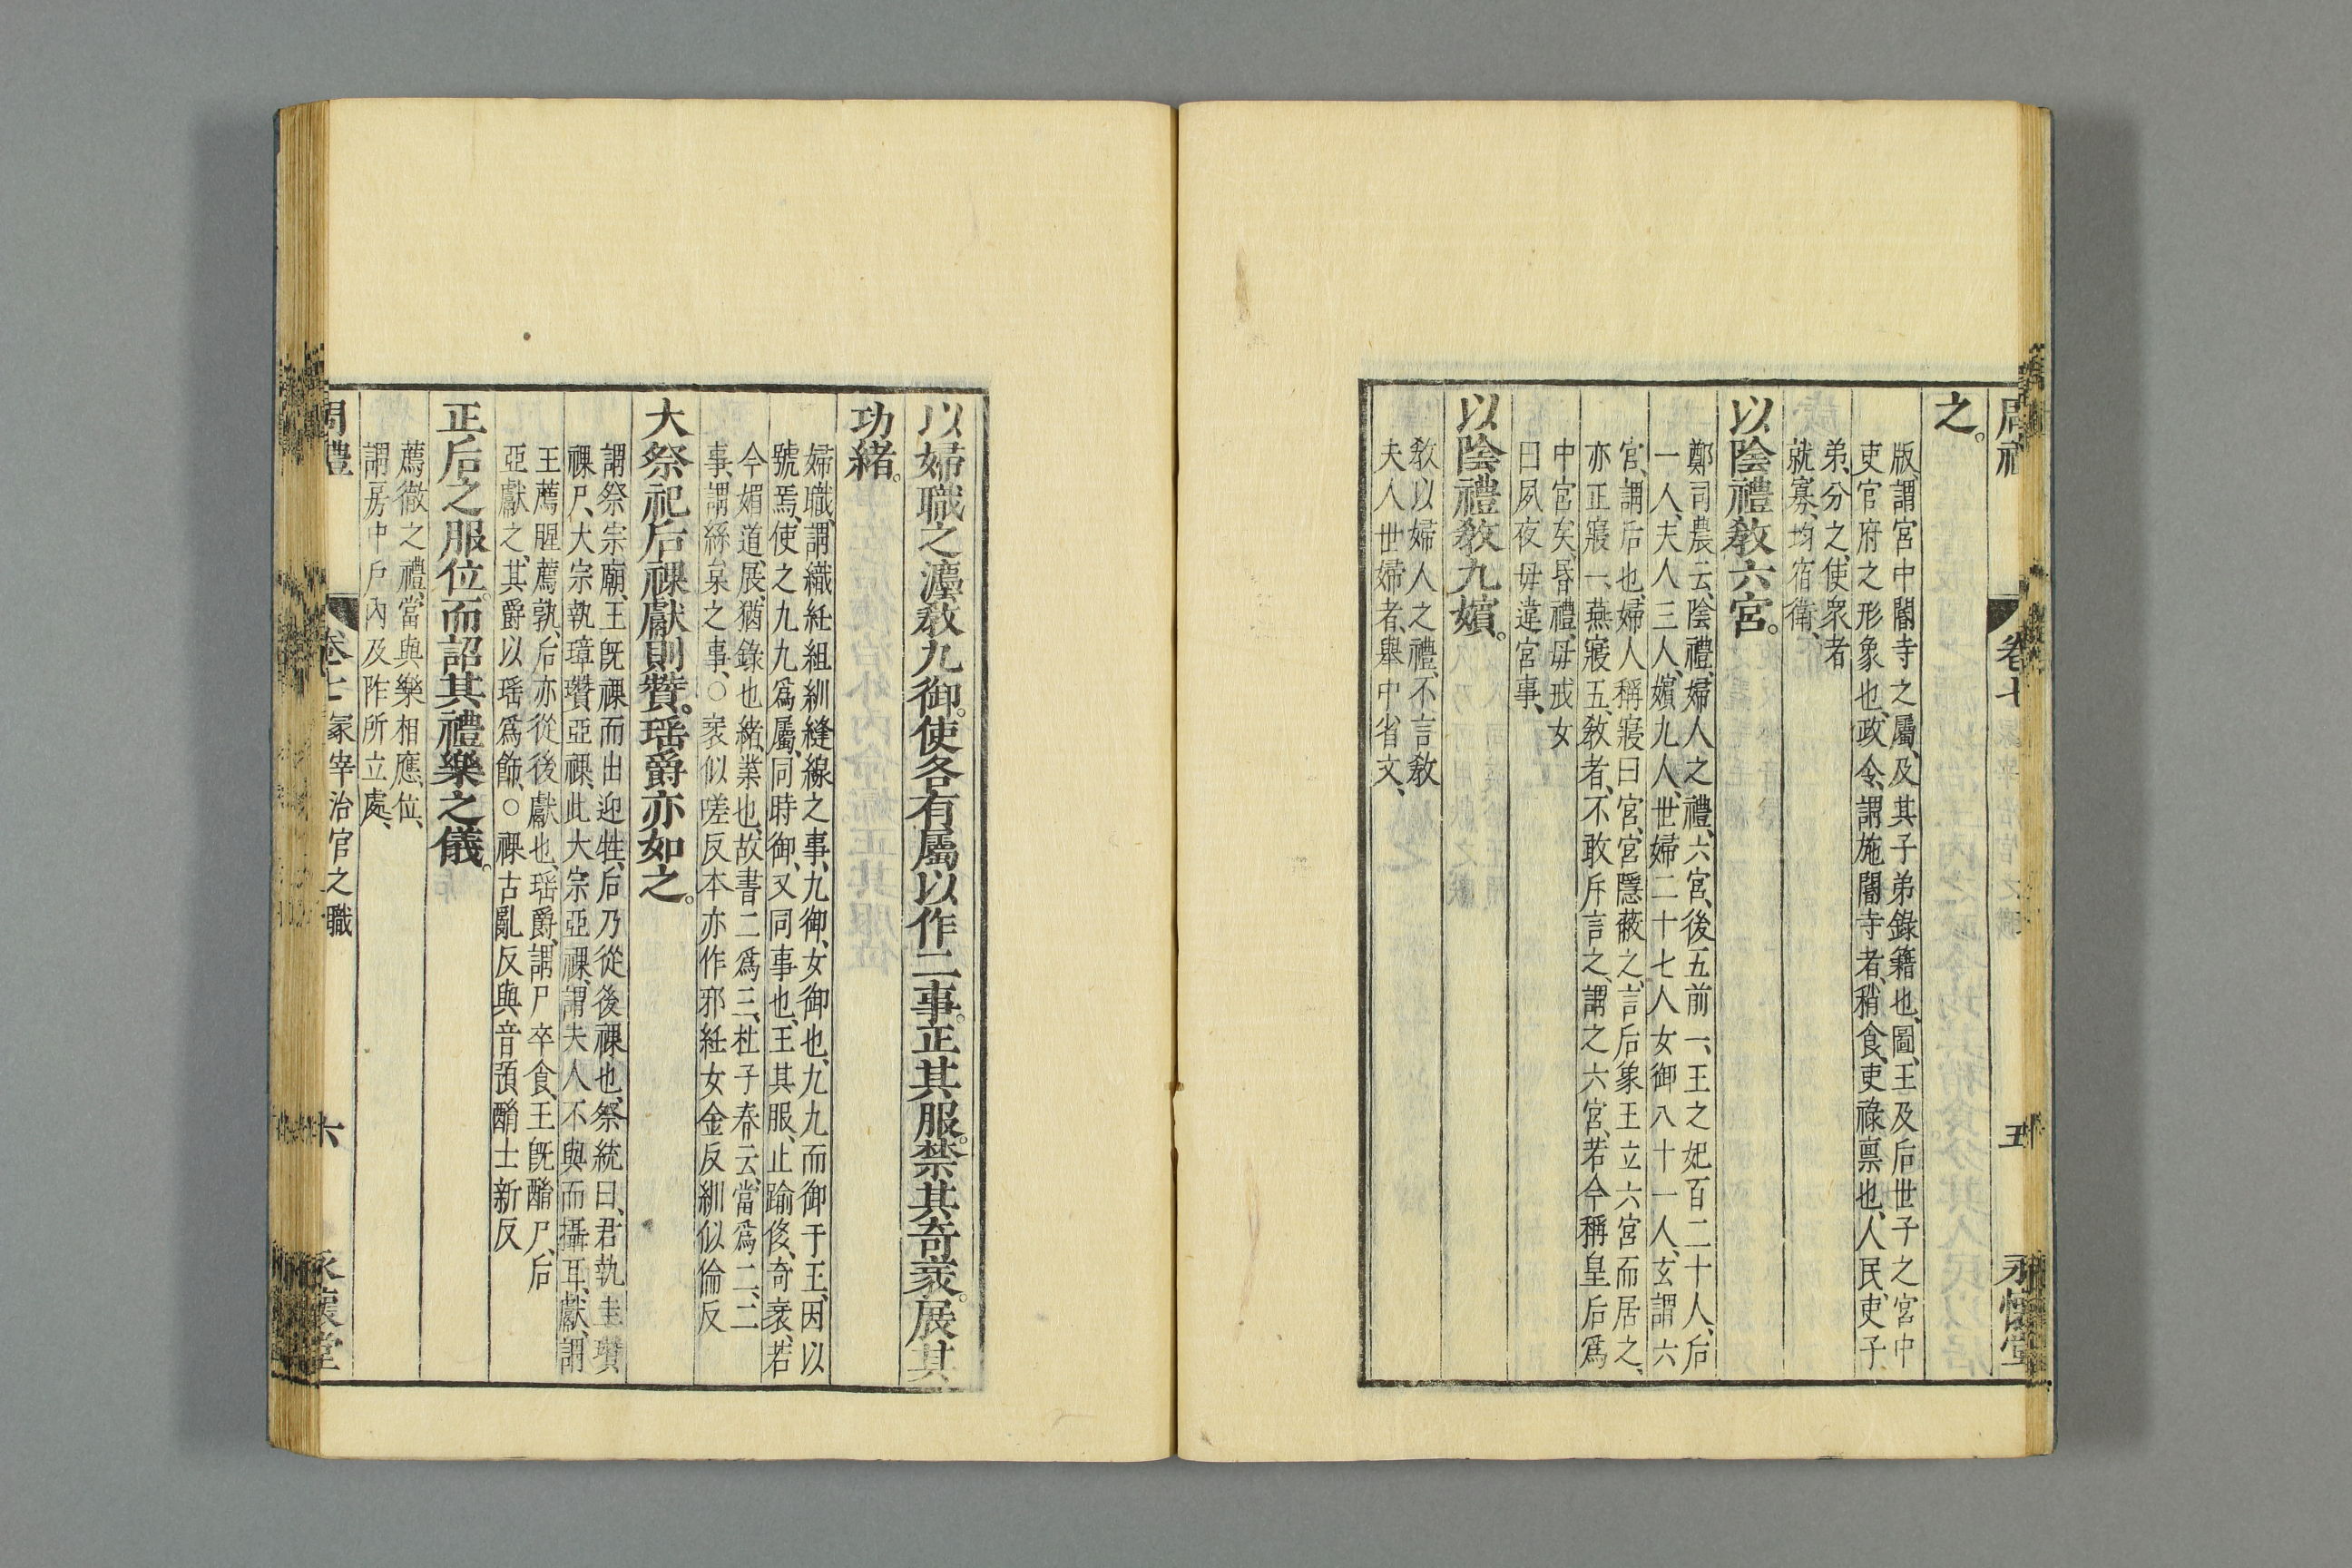 周禮 卷七 五 永懷堂
之。
版、謂宮中閽寺之屬、及其子弟錄籍也、圖、王及后世子之宮中
吏官府之形象也、政令、謂施閽寺者、稍食、吏祿稟也、人民、吏子
弟、分之、使衆者
就寡、均宿衛、
以陰禮敎六宮。
鄭司農云、陰禮、婦人之禮、六宮、後五前一、王之妃百二十人、后
一人、夫人三人、嬪九人、世婦二十七人女御八十一人、玄謂六
宮、謂后也、婦人稱寢曰宮、宮隱蔽之、言后象王立六宮而居之、
亦正寢一、燕寢五、敎者、不敢斥言之、謂之六宮、若今稱皇后爲
中宮矣、昬禮、毋戒女
曰夙夜毋違宮事、
以陰禮敎九嬪。
敎以婦人之禮、不言敎
夫人世婦者、舉中省文、
以婦職之灋敎九御。使各有屬以作二事。正其服。禁其奇衺。展其
功緒。
婦職、謂織紝組紃縫線之事、九御、女御也、九九而御于王、因以
號焉、使之九九爲屬、同時御、又同事也、王其服、止踰侈、奇衺、若
今媚道、展、猶錄也緒、業也、故書二爲三、杜子春云、當爲二、二
事、謂絲枲之事、○衺似嗟反本亦作邪紝女金反紃似倫反
大祭祀后祼獻則贊。瑶爵亦如之。
謂祭宗廟、王旣祼而出迎牲、后乃從後祼也、祭統曰、君執圭瓚
祼尸、大宗執璋瓚亞祼、此大宗亞祼、謂夫人不與而攝耳、獻、謂
王薦腥薦孰、后亦從後獻也、瑶爵、謂尸卒食、王旣酳尸、后
亞獻之、其爵以瑶爲飾、○祼古亂反與音預酳士新反
正后之服位。而詔其禮樂之儀。
薦徹之禮、當與樂相應、位、
謂房中戶內及阼所立處、
周禮 卷七 冢宰治官之職 六 永懷堂